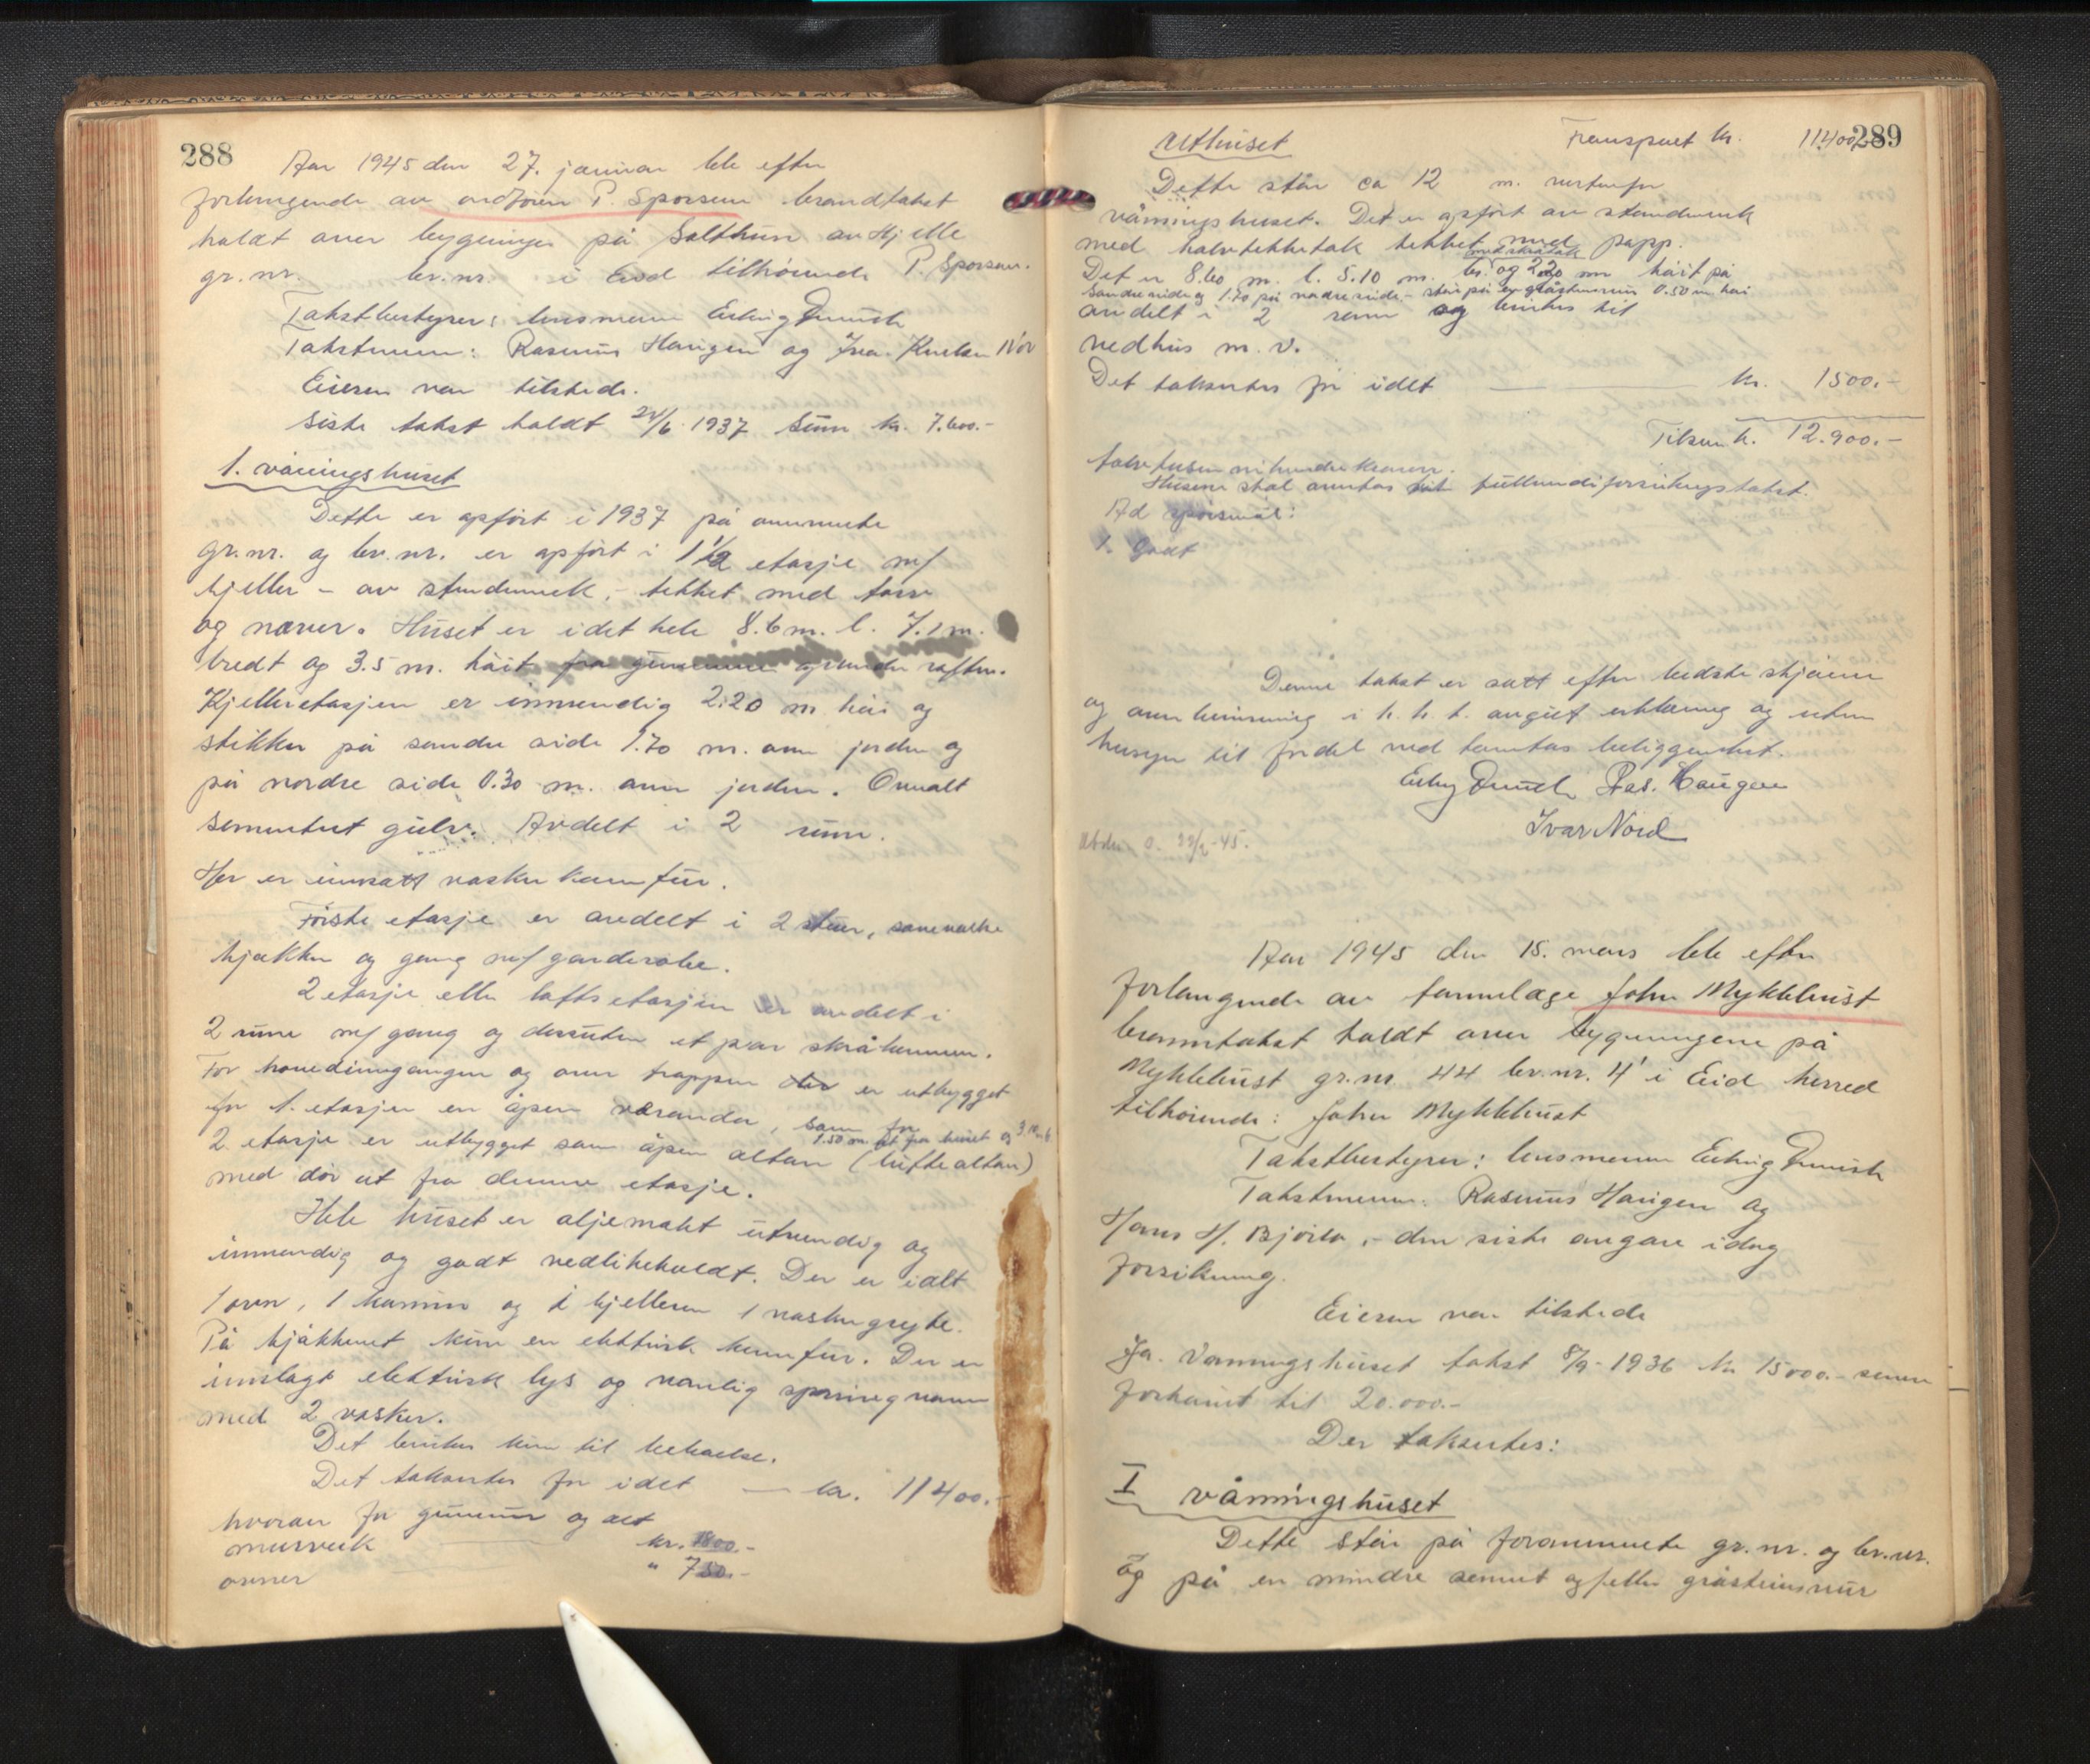 288
Aar 1945 den 27. januar ble efter
forlangende av ordfører P. Sporsem brandtakst
holdt over bygninger på Solthun av Hjelle
gr.nr. br.nr. i Eid tilhørende P. Sporsem.
Takstbestyrer: lensmann Erling
Takstmenn: Rasmus Haugen og Ivar Nor
Eieren var tilstede.
Siste takst holdt 24/6 1937 Sum kr. 7.600.-
1. våningshuset
Dette er opført i 1937 på ovennevnte
gr.nr. og br.nr. er opført i 1 1/2 etasje m/
kjeller - av stenderverk, - tekket med torv
og never. Huset er i det hele 8.6 m. l. 7.1 m.
bredt og 3.5 m. høit fra grunnmur og under raften.
Kjelleretasjen er innvendig 2.20 m høi og
stikker på søndre side 1.70 m. over jorden og
på nordre side 0.30 m. over jorden. Overalt
sementert gulv. Avdelt i 2 rum.
Her er innsatt vaske komfur.
Første etasje er avdelt i 2 stuer, samt
kjøkken og gang m/ garderobe.
2 etasje eller loftsetasjen er avdelt i
2 rum m/ gang og dessuten et par skråkammer.
For hovedinngangen og over trappen er utbygget
for 1. etasje en åpen veranda, som for
1.50 m ut fra huset og 3.10 m b
2. etasje er utbygget som åpen altan (luftealtan)
med dør ut fra denne etasje.
Hele huset er oljemalt utvendig og
innvendig og godt vedlikeholdt. Der er i alt
1 ovn, 1 kamin og i kjelleren 1 vaskegryte.
På kjøkkenet kun en elektrisk komfur. Der er
innlagt elektrisk lys og vanlig springvann
med 2 vasker.
Det brukes kun til beboelse.
Det takseres for idet — kr. 11400.-
hvorav for grunnmur og alt
murverk — kr. 1800.-
ovner " 750.-
289
Uthuset Transport kr. 11400.-
Dette står ca 12 m. vestenfor
våningshuset. Det er opført av stenderverk
med halvtekketak tekket med papp.
med skråtak
Det er 8.60 m. l. 5.10 m. br. og 2.20 m høit på
søndre side og 1.70 på nordre side - står på en gråstensmur 0.50 m. høi
avdelt i 2 rum og brukes til
vedhus m.v.
Det takseres for idet — kr. 1500.-
Tilsum k. 12.900.-
tolvtusen nihundre kroner.
Husene skal ansettes til fullverdiforsikringstakst.
Ad spørsmål:
1. Godt
Denne takst er satt efter bedste skjønn
og overbevisning i h. h. t. avgiet erklæring og uten
hensyn til fordel ved tomtas beliggenhet.
Erling Ras. Haugen
Ivar Nord
Utskr. 0. 22/2-45.
Aar 1945 den 15. mars ble efter
forlangende av tannlæge John Myklebust
branntakst holdt over bygningene på
Myklebust gr.nr 44 br.nr. 4 i Eid herred
tilhørende: John Myklebust
Takstbestyrer: lensmann Erling
Takstmenn: Rasmus Haugen og
Hans H. Bjørlo, - den siste avgav idag
forsikring.
Eieren var tilstede
Ja. Våningshuset takst 8/9-1936 kr 15000.- senere
forhøiet til 20.000.-
Der takseres:
I våningshuset
Dette står på forannevnte gr.nr. og br.nr.
og på en mindre sement og/eller gråsteinsmur